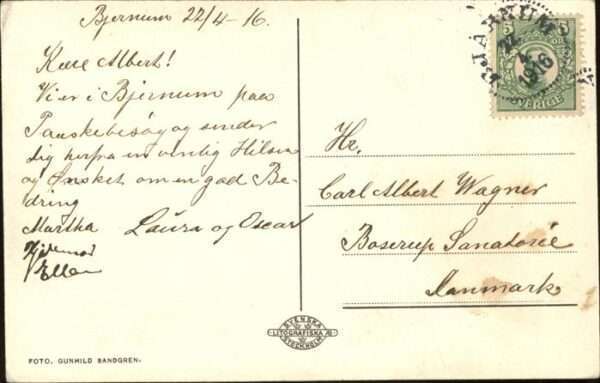 Bjernum 22/4-16.
Kære Albert!
Vi er i Bjernum paa
Paaskebesøg og sender
dig herfra en venlig Hilsen
og Ønsket om en god Be-
dring
Martha Laura og Oscar
Ellen
5 5
SVERIGE
BJÄRNUM
22
4
1916
Hr.
Carl Albert Wagner
Boserup Sanatorie
Danmark
SVENSKA
LITOGRAFISKA AB
STOCKHOLM
FOTO. GUNHILD SANDGREN.